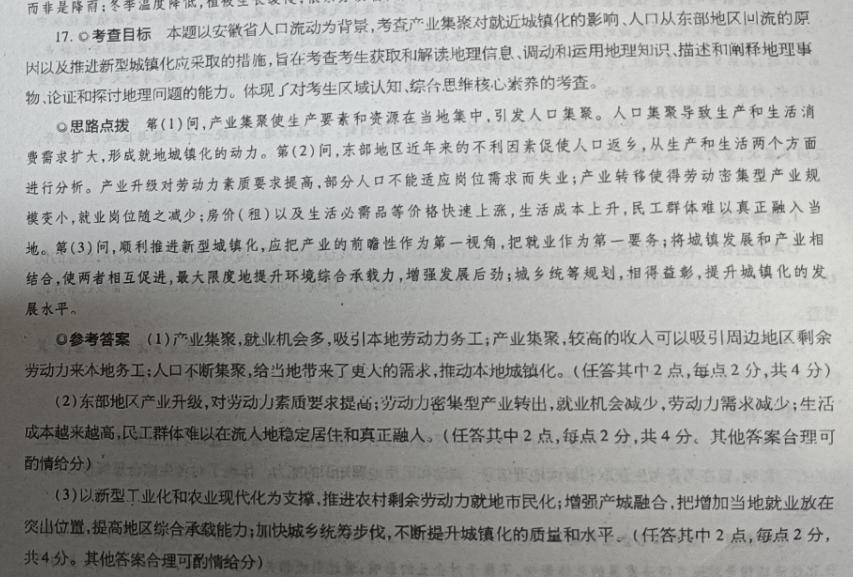 而非是降雨;冬季温度降低,植被生长缓慢,
17. ◎考查目标 本题以安徽省人口流动为背景,考查产业集聚对就近城镇化的影响、人口从东部地区回流的原
因以及推进新型城镇化应采取的措施,旨在考查考生获取和解读地理信息、调动和运用地理知识、描述和阐释地理事
物、论证和探讨地理问题的能力。体现了对考生区域认知、综合思维核心素养的考查。
◎思路点拨 第(1)问,产业集聚使生产要素和资源在当地集中,引发人口集聚。人口集聚导致生产和生活消
费需求扩大,形成就地城镇化的动力。第(2)问,东部地区近年来的不利因素促使人口返乡,从生产和生活两个方面
进行分析。产业升级对劳动力素质要求提高,部分人口不能适应岗位需求而失业;产业转移使得劳动密集型产业规
模变小,就业岗位随之减少;房价(租)以及生活必需品等价格快速上涨,生活成本上升,民工群体难以真正融入当
地。第(3)问,顺利推进新型城镇化,应把产业的前瞻性作为第一视角,把就业作为第一要务;将城镇发展和产业相
结合,使两者相互促进,最大限度地提升环境综合承载力,增强发展后劲;城乡统筹规划,相得益彰,提升城镇化的发
展水平。
◎参考答案 (1)产业集聚,就业机会多,吸引本地劳动力务工;产业集聚,较高的收入可以吸引周边地区剩余
劳动力来本地务工;人口不断集聚,给当地带来了更大的需求,推动本地城镇化。(任答其中2点,每点2分,共4分)
(2)东部地区产业升级,对劳动力素质要求提高;劳动力密集型产业转出,就业机会减少,劳动力需求减少;生活
成本越来越高,民工群体难以在流入地稳定居住和真正融入。(任答其中2点,每点2分,共4分。其他答案合理可
酌情给分)
(3)以新型工业化和农业现代化为支撑,推进农村剩余劳动力就地市民化;增强产城融合,把增加当地就业放在
突出位置,提高地区综合承载能力;加快城乡统筹步伐,不断提升城镇化的质量和水平。(任答其中2点,每点2分,
共4分。其他答案合理可酌情给分)